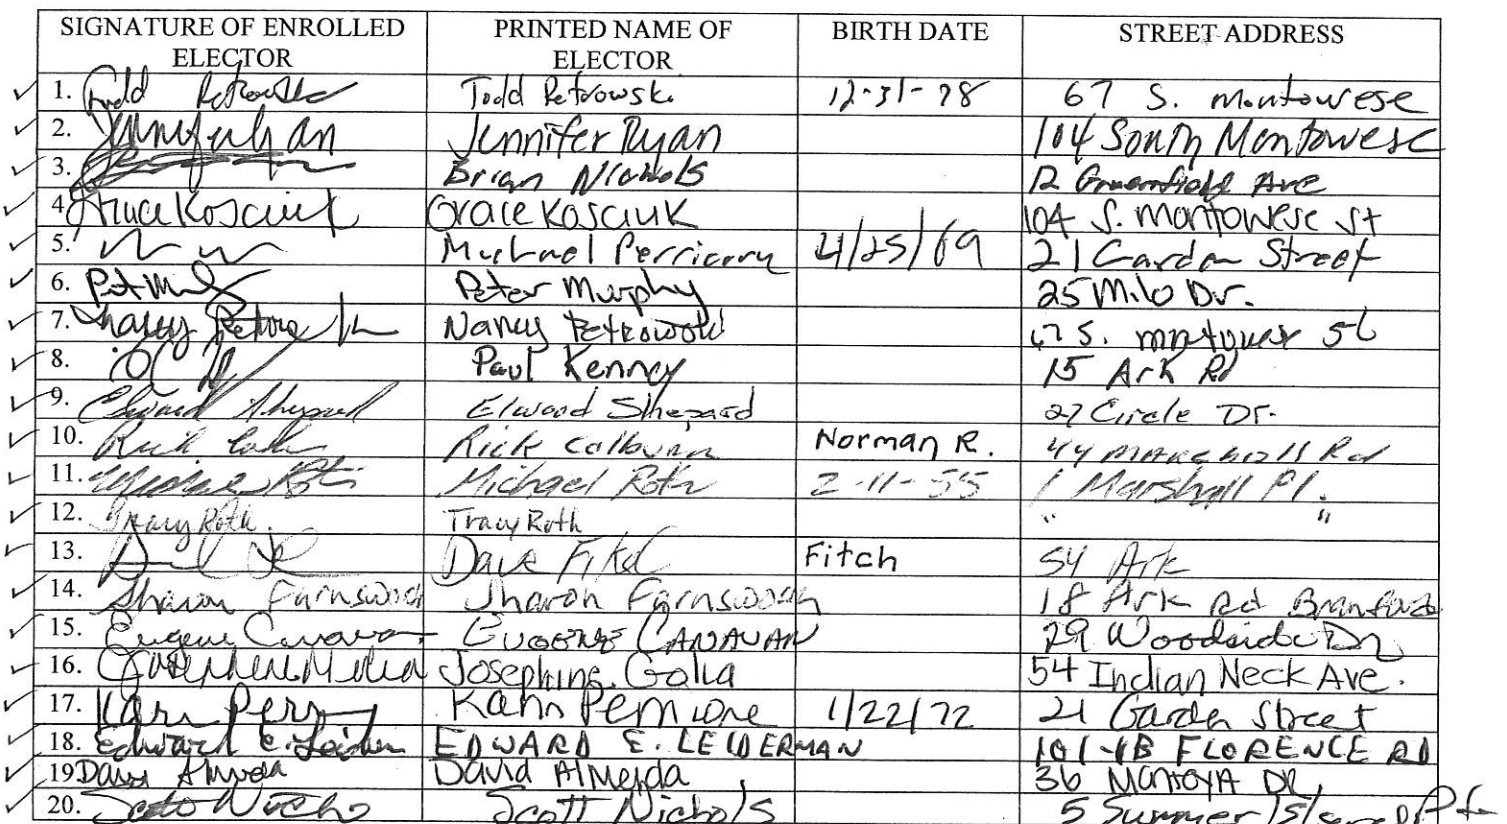 SIGNATURE OF ENROLLED ELECTOR PRINTED NAME OF ELECTOR BIRTH DATE STREET ADDRESS
1. Todd Petrowski Todd Petrowski 12-31-78 67 S. Montowese
2. Jennifer Ryan Jennifer Ryan 104 South Montowese
3. Brian Nichols 12 Ave
4. Grace Kosciuk Grace Kosciuk 104 S. Montowese St
5. Michael 4/25/69 21 Garden Street
6. Peter Murphy 25 Milo Dr.
7. Nancy Nancy S. St
8. Paul Kenney 15 Ark Rd
9. Elwood Shepard Elwood Shepard 27 Circle Dr.
10. Rick Rick Norman R. 44 Rd
11. Michael Roth Michael Roth 2-11-55 1 Marshall Pl.
12. Tracy Roth. Tracy Roth " "
13. Dave Fitch 54 Ark
14. Sharon Farnsworth Sharon Farnsworth 18 Ark Rd Branford
15. Eugene Canavan EUGENE CANAVAN 29 Woodside Dr
16. Josephine Josephine Galla 54 Indian Neck Ave.
17. 1/22/72 21 Garden Street
18. Edward E. Leiderman EDWARD E. LEIDERMAN 101-4B FLORENCE RD
19 David Almeida David Almeida 36 Montoya DR
20. Scott Nichols Scott Nichols 5 Summer